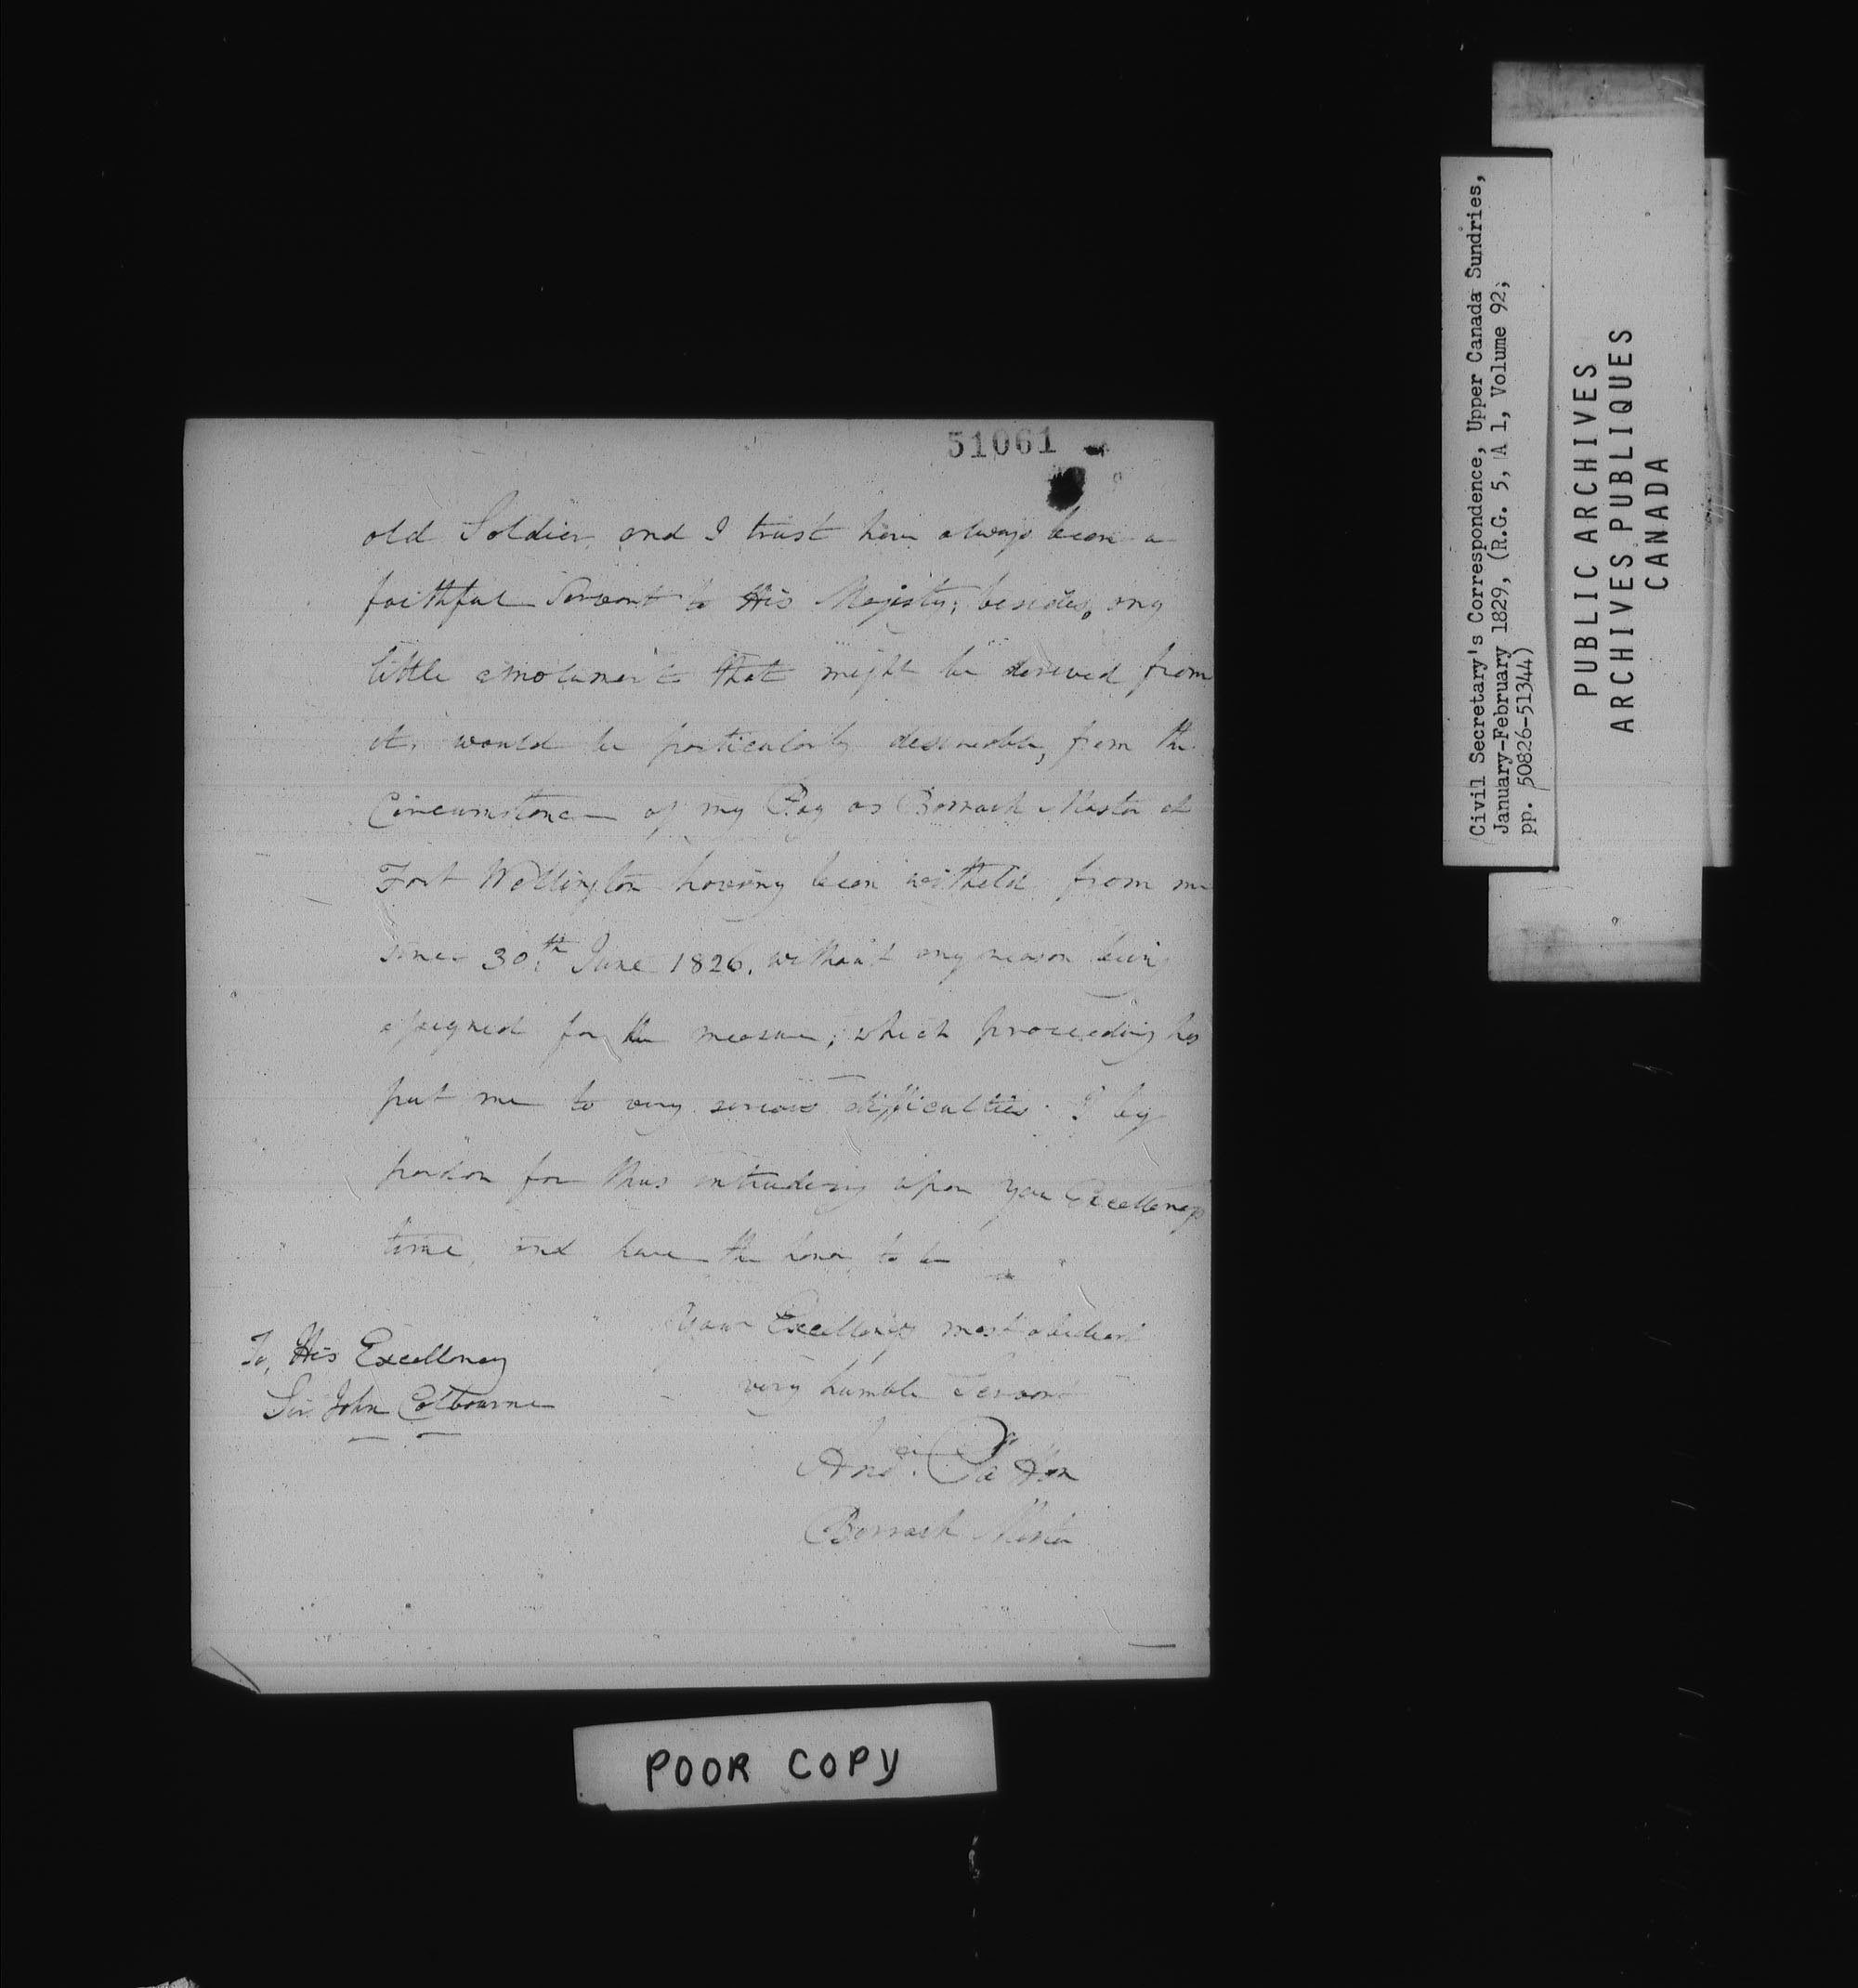 51061
old Soldier, and I trust have always been a
faithful Servant to His Majesty; besides, any
little emolument that might be derived from
it, would be particularly desireable, from the
Circumstance of my Pay as Barrack Master at
Fort Wellington having been witheld from me
since 30th June 1826, without any reason being
assigned for the measure; which proceeding has
put me to very serious difficulties. I beg
pardon for thus intruding upon your Excellencys
time, and have the honor to be
Your Excellencys most obedient
very humble Servant
Andw. Patton
Barrack Master
To, His Excellency
Sir John Colbourne
POOR COPY
Civil Secretary's Correspondence, Upper Canada Sundries,
January-February 1829, (R.G. 5, A 1, Volume 92,
pp. 50826-51344)
PUBLIC ARCHIVES
ARCHIVES PUBLIQUES
CANADA